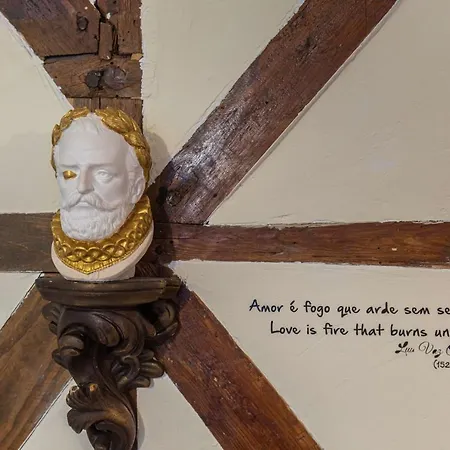 Amor é fogo que arde sem se
Love is fire that burns un
Luís Vaz C
(152